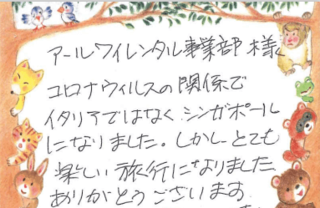 アールワイレンタル事業部 様
コロナウィルスの関係で
イタリアではなく シンガポール
になりました。しかし とても
楽しい 旅行になりました
ありがとうございます